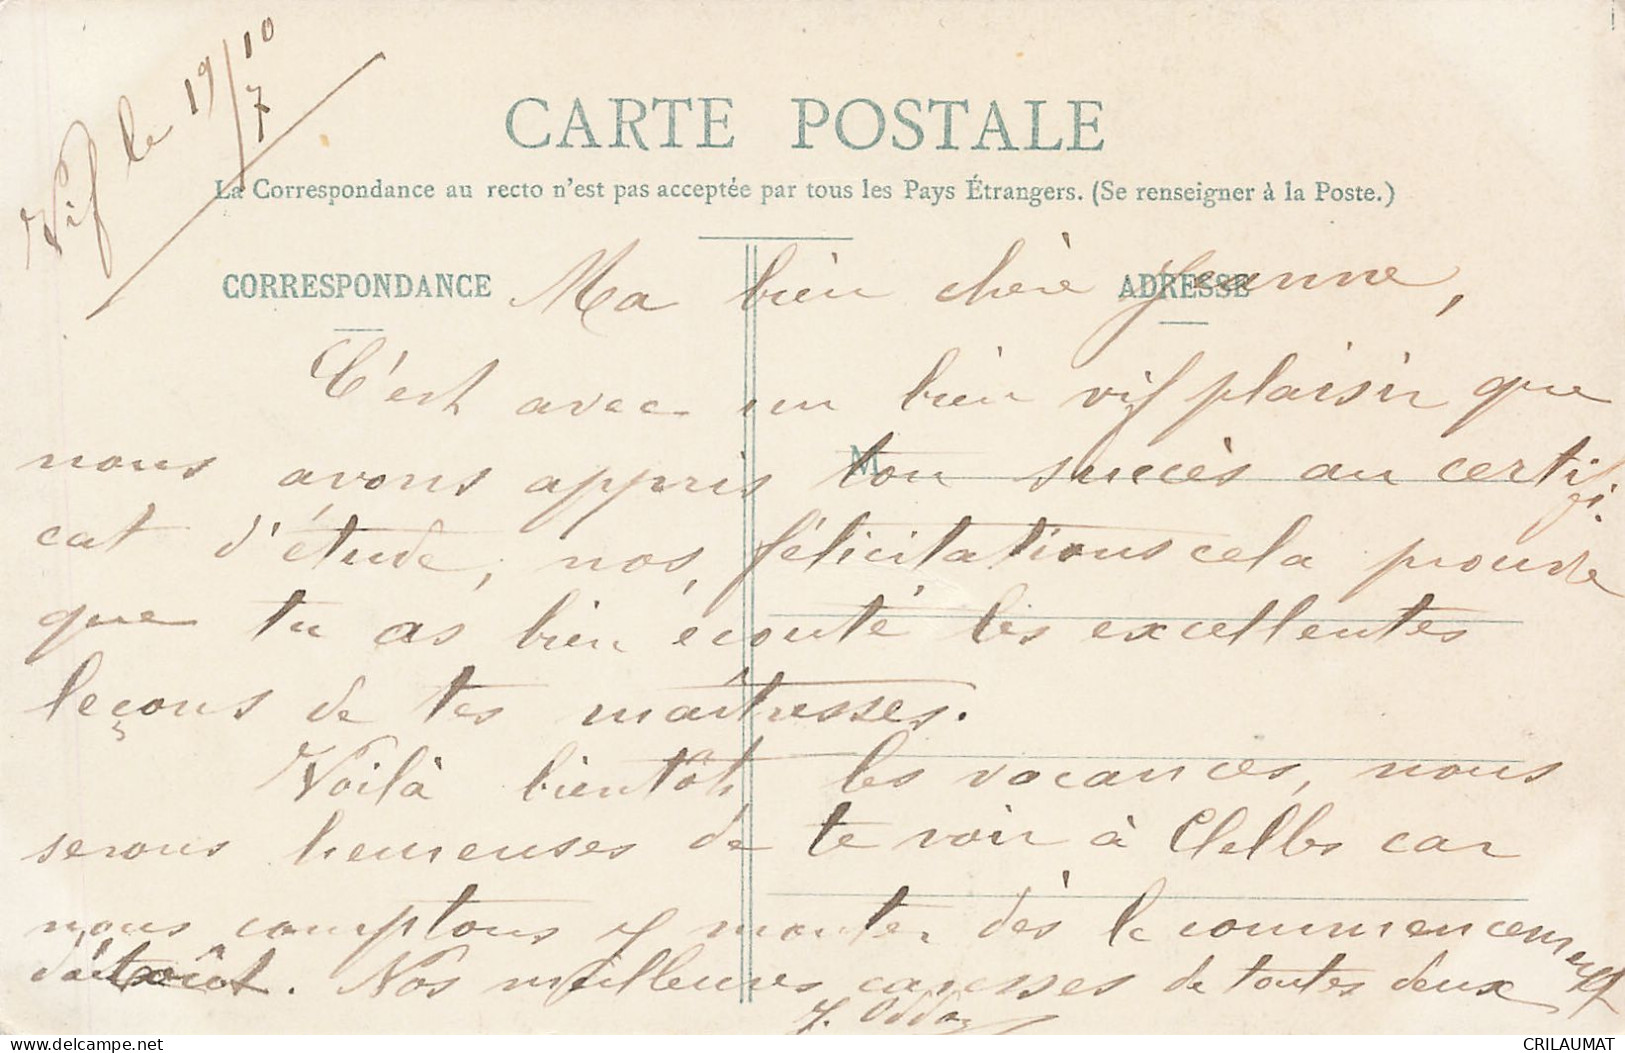 Vif le 19/7 10
CARTE POSTALE
La Correspondance au recto n'est pas acceptée par tous les Pays Étrangers. (Se renseigner à la Poste.)
CORRESPONDANCE
ADRESSE
M
Ma bien chère Jeanne,
C'est avec un bien vif plaisir que
nous avons appris ton succès au certifi-
cat d'étude, nos félicitations cela prouve
que tu as bien écouté les excellentes
leçons de tes maîtresses.
Voilà bientôt les vacances, nous
serons heureuses de te voir à Clelles car
nous comptons y monter dès le commencement
d'août. Nos meilleures caresses de toutes deux
CRILAUMAT